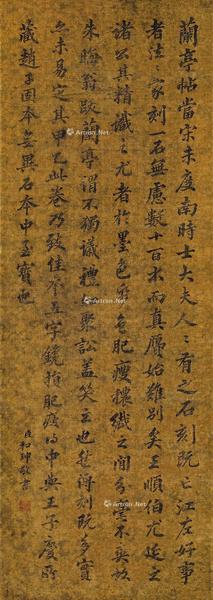 蘭亭帖當宋未度南時士大夫人人有之石刻既亡江左好事
者往往家刻一石無慮數十百本而真贗始難別矣王順伯尤延之
諸公其精識之尤者於墨色紙色肥瘦穠纖之間分毫不爽故
朱晦翁跋蘭亭謂不獨議禮如聚訟蓋笑之也然傳刻既多實
亦未易定其甲乙此卷乃致佳本五字鑱損肥瘦得中與王子慶所
藏趙子固本無異石本中至寶也
臣和珅敬書